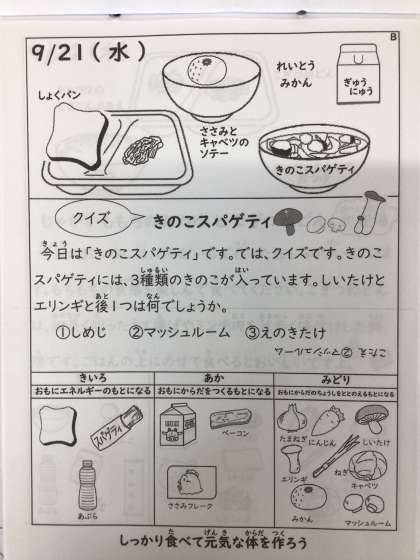 B
9/21(水)
れいとう
みかん
ぎゅう
にゅう
しょくパン
ささみと
キャベツの
ソテー
きのこスパゲティ
クイズ
きのこスパゲティ
きょう
今日は「きのこスパゲティ」です。では、クイズです。きのこ
しゅるい はい
スパゲティには、3種類のきのこが入っています。しいたけと
あと なん
エリンギと後1つは何でしょうか。
①しめじ ②マッシュルーム ③えのきたけ
こたえ ②マッシュルーム
きいろ あか みどり
おもにエネルギーのもとになる おもにからだをつくるもとになる おもにからだのちょうしをととのえるもとになる
スパゲティ
あぶら
ベーコン
ささみフレーク
たまねぎ にんじん しいたけ
エリンギ ねぎ キャベツ
みかん マッシュルーム
た げんき からだ つく
しっかり食べて元気な体を作ろう